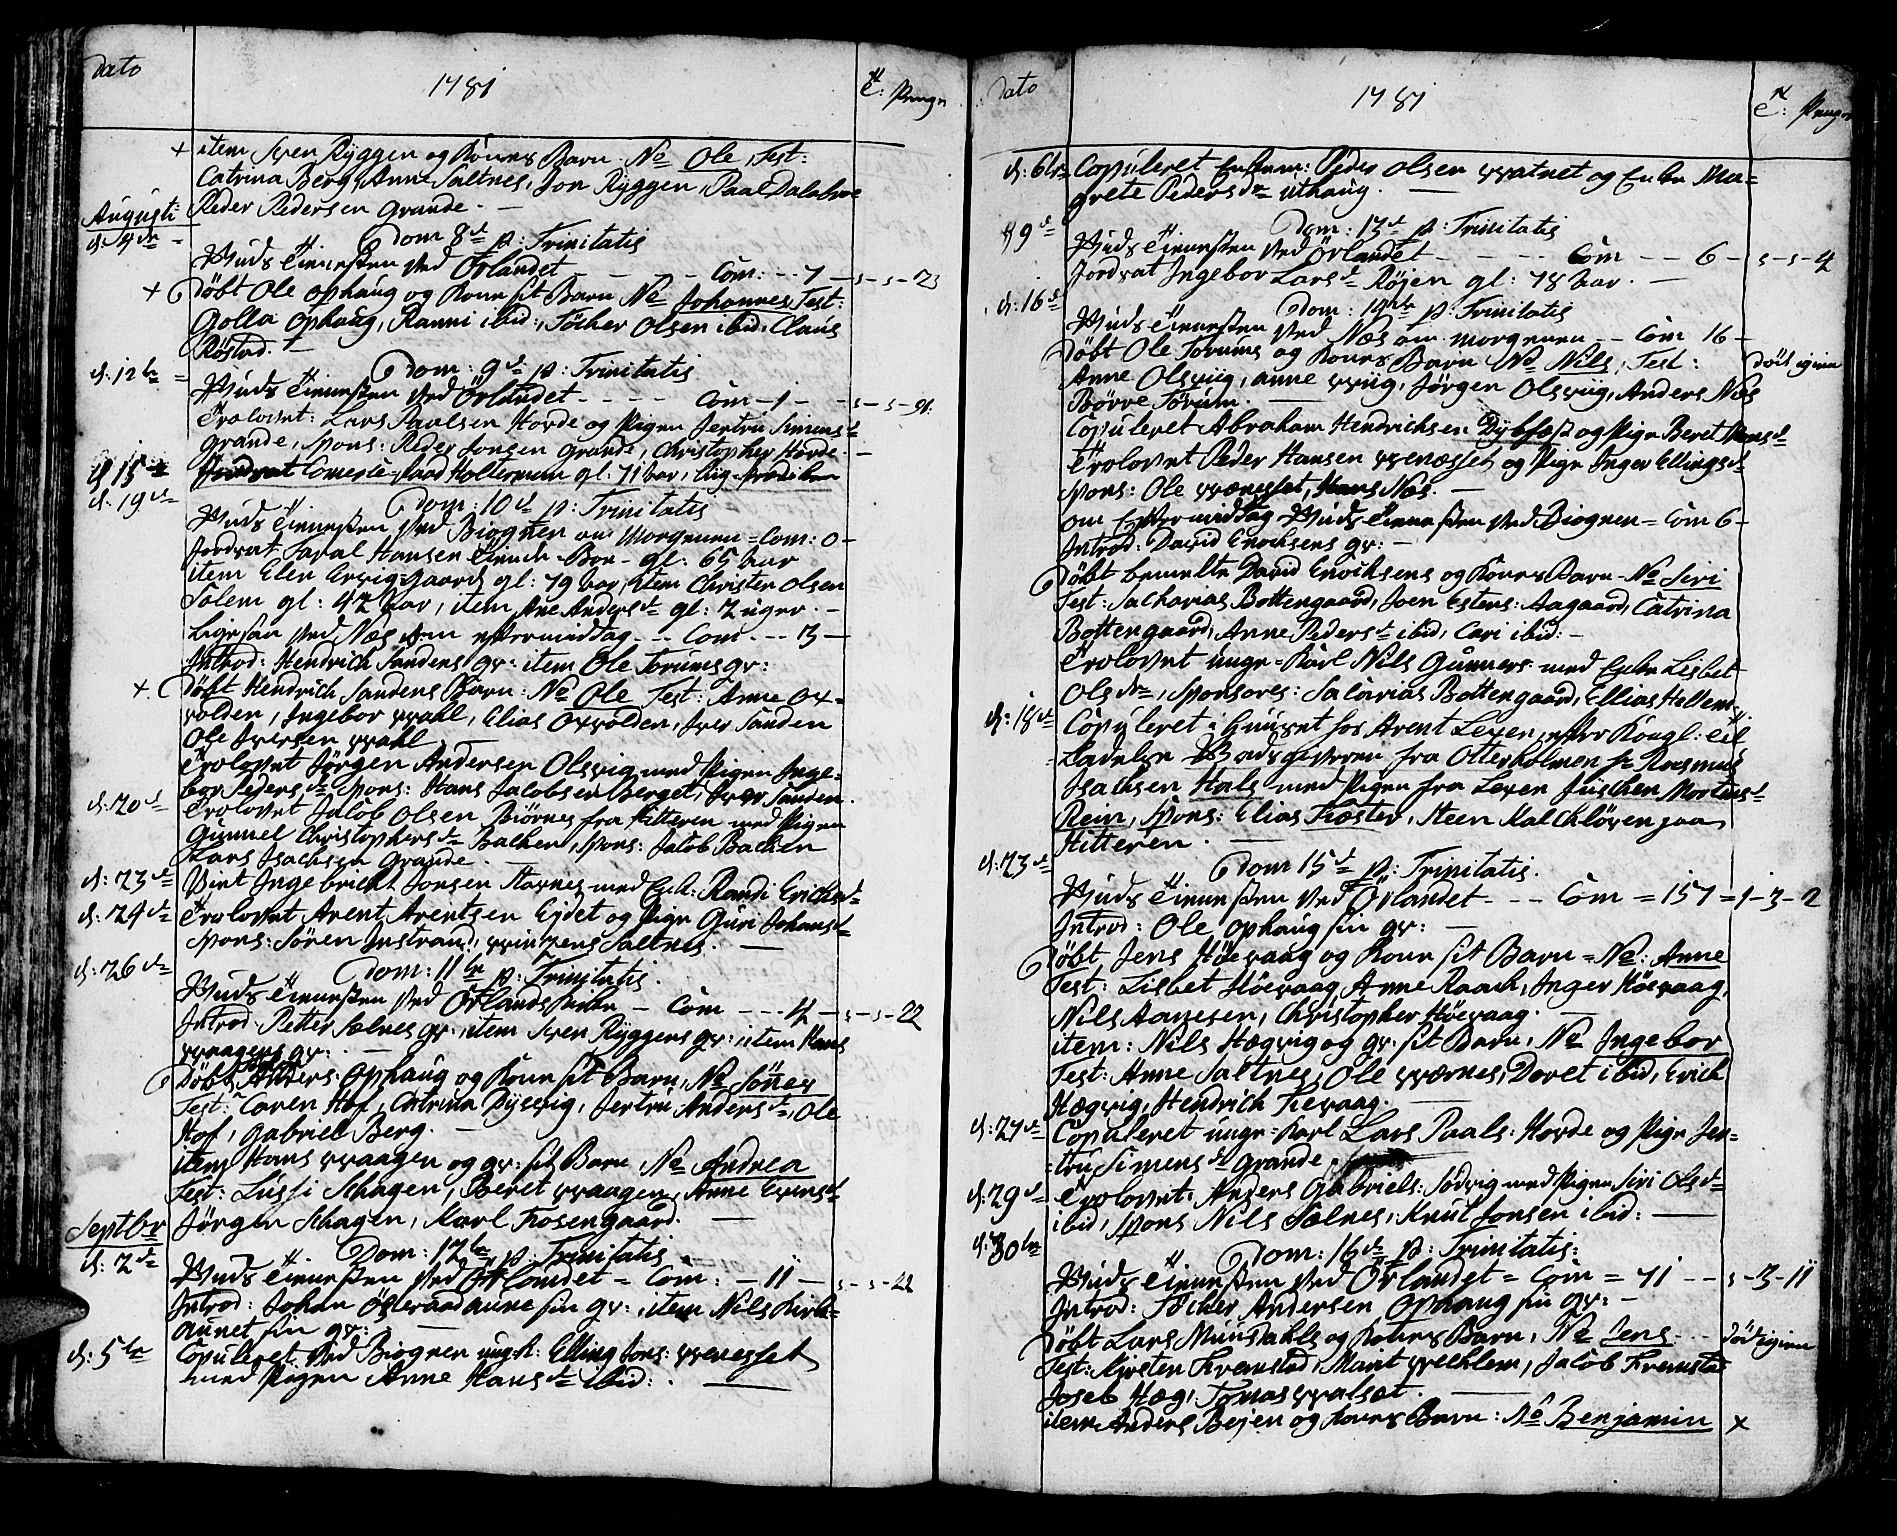 Dato
1781
Penge
item Sven Ryggen og Kones Barn No Ole, Test:
Catrina Berg, Anne Saltnes, Jon Ryggen, Paal Dalabroe
Peder Pedersen Grande. -
Augusti
Dom 8de p: Trinitatis
Guds Tienesten ved Örlandet - - - Com: - - 7 - s - s - 23
+ Döbt Ole Ophaug og Kone sit Barn No Johannes, Test:
Golla Ophaug, Ranni ibid:, Töcher Olsen ibid, Claus
Röstad. -
d. 12te
Dom: 9de p: Trinitatis
Guds Tienesten ved Örlandet - - - Com - 1 - - s - s - 91.
Trolovet: Lars Paulsen Hovde og Pigen Jertru Simensd
Grande, Spons: Peder Jonsen Grande, Christopher Hovde. -
d 15de
gl: 71 aar,
d. 19de
Dom: 10de p: Trinitatis
Guds Tienesten ved Biognen om Morgenen = Com: 0 -
Jordsat Hansen gl: 65 aar
item Elen gl: 79 aar, item Christen Olsen
Solem gl: 42 aar, item, Ane Andersd gl: 2 uger. -
Ligesaa ved Næs om eftermiddag - - Com - - 13 -
Introd: Hendrich Sandens qv: item Ole Torums qv:
+. Döbt Hendrich Sandens Barn: No Ole Test: Anne Ox-
volden, Ingebor Wahl, Elias Oxvolden, Iver Sanden
Ole Iversen Wahl -
Trolovet Jörgen Andersen Olsvig med Pigen Inge-
bor Pedersd Spons: Hans Jacobsen Berget, Iver Sanden.
d. 20de Trolovet Jacob Olsen Biörnes fra Hitteren med Pigen
Gunnel Christophersd Bachen, Spons: Jacob Bachen
Lars Isachsen Grande. -
d: 23de Viet Ingebricht Jonsen med Enk: Randi Erichsd
d: 24de Trolovet Arent Arentsen Eidet og Pige Guri Johansd
Spons: Sören Wintzens Saltnes. -
d: 26de
Dom: 11te p: Trinitatis.
Guds Tienesten ved Örlands - Com - - - 4 - s - s - 22
Introd: Petter Sælnes qv: item Sven Ryggens qv: item Hans
Waagens qv: -
Döbt Anders Ophaug og Kone sit Barn, No Sönev
Test: Caren Hof, Catrina Dysvig, Jertru Andersd, Ole
Hof, Gabriel Berg. -
item Hans Waagen og qv: sit Barn, No Andrea
Test: Lussi Schagen, Beret Waagen, Anne Evensd
Jörgen Schagen, Karl Rosengaard. -
Septbr
d: 2de
Dom: 12te p: Trinitatis
Guds Tienesten ved Örlandet = Com: - 11 - s - s - 22
Introd: Johan sin qv: item Nils Kirk-
aunet sin qv: -
d: 5te Copuleret ved Biognen ungk: Elling Jons: Weresset
med Pigen Anne Hansd ibid: . -
Dato
1781
Penge
d: 6te Copuleret Enkem: Peder Olsen Watnet og Enke Ma-
grete Pedersdr Uthaug. -
d 9de
Dom: 13de p: Trinitatis
Guds Tienesten ved Örlandet - - - - Com - - 6 - s - s - 4
Jordsat Ingebor Larsd Röjen gl: 78 aar. -
d: 16de
Dom: 14de p: Trinitatis
Guds Tienesten ved Næs om morgenen - Com 16 -
Döbt Ole Torums og Kones Barn No Nils, Test:
Anne Olsvig, Anne Jörgen Olsvig, Anders Næs
Börre Törum. -
Copuleret Abraham Hendrichsen Dybfest og Pige Beret
Trolovet Peder Hansen Weresset og Pige Inger Ellingsd
Spons: Ole Weresset, Hans Næs. -
om Eftermiddag Guds Tienesten ved Biognen = Com 6 -
Introd: David Enochsens qv: -
Döbt bemelte David Enochsens og Kones Barn - No Siri
Test: Sacharias Bottengaard, Joen Esters: Aagaard, Catrina
Bottengaard, Anne Pedersd ibid, Cari ibid: -
Trolovet unge-Karl Nils Gunners med Enke Lisbet
Olsdr, Sponsores: Sacarias Bottengaard, Ellias Hellem.
d: 18de Copuleret i Huuset hos Arent Lexen, efter Kongl: Til
ladelse fra Otterholmen Sr Rasmus
Isachsen Hals med Pigen fra Lexen Mortensd
Rein, Spons: Elias Steen Kalchlöven paa
Hitteren. -
d: 23de
Dom 15de p: Trinitatis.
Guds Tienesten ved Örlandet - - - Com = 157 = 1 - 3 - 2
Introd: Ole Ophaug sin qv: -
Döbt Jens Höevaag og Kone sit Barn = No: Anne
Test: Lisbet Höevaag, Anne Raach, Inger Höevaag,
Nils Aanesen, Christopher Höevaag. -
item: Nils Hægvig og qv: sit Barn, No Ingebor
Test: Anne Saltnes, Ole Wærnes, Doret ibid, Erich
Hægvig, Hendrich
d: 27de Copuleret unge-Karl Lars Paals: Hovde og Pige Jer-
tru Simensd Grande
d: 29de Trolovet: Anders Gabriels: Södvig med Pigen Siri Olsd
ibid, Spons Nils Sælnes, Knut Jonsen ibid: -
d: 30te
Dom: 16de p: Trinitatis:
Guds Tienesten ved Örlandet = Com = 71 - - s - 3 - 11
Introd: Töcher Andersen Ophaug sin qv: -
Döbt Lars Muusdahls og Kones Barn, No Jens - -
Test: Kirsten Kremstad, Marit Jacob Kremstad
Joseb Hæg, Tomas Walsæt. -
item Anders Bejen og Kones Barn: No Benjamin +